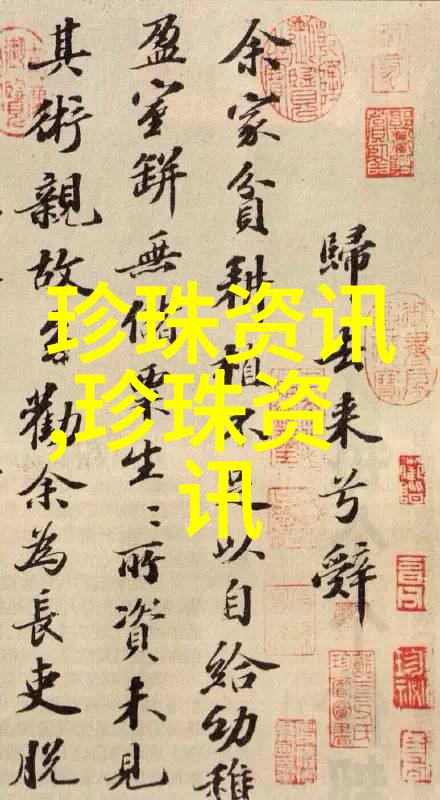 珍珠资讯
,珍珠资
讯
歸去来兮辭
余家貧耕植不足以自給幼稚
盈室缾無儲粟生〻所資未見
其術親故多勸余為長吏脫